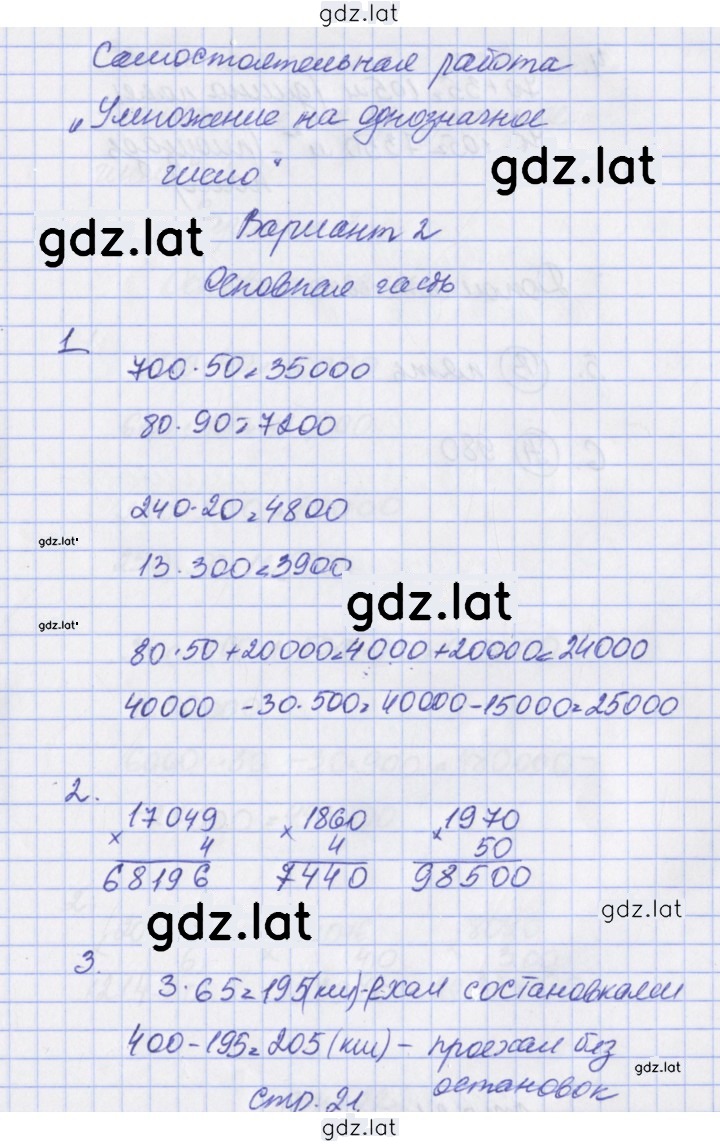 gdz.lat
Самостоятельная работа
"Умножение на однозначное
число"
gdz.lat
gdz.lat
Вариант 2
Основная часть
1
700·50=35000
80·90=7200
240·20=4800
gdz.lat
13·300=3900
gdz.lat
gdz.lat
80·50+20000=4000+20000=24000
40000 -30·500=40000-15000=25000
2.
17049 1860 1970
× 4 × 4 × 50
68196 7440 98500
gdz.lat
gdz.lat
3.
3·65=195(км)-ехал состановками
400-195=205(км)- проехал без
gdz.lat
остановок
стр. 21
gdz.lat